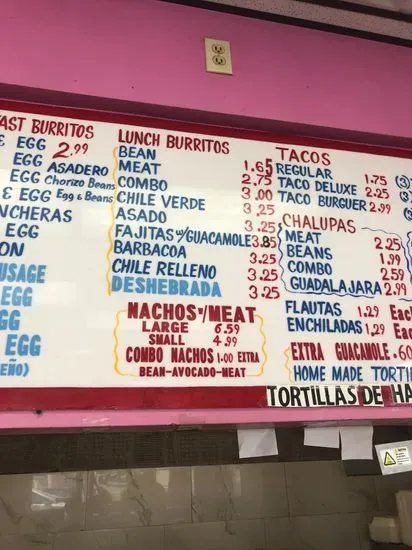 AST BURRITOS
& EGG 2.99
EGG ASADERO
EGG Chorizo Beans
& EGG Egg & Beans
NCHERAS
EGG
ON
USAGE
EGG
GG
EGG
EÑO)
LUNCH BURRITOS
BEAN 1.65
MEAT 2.75
COMBO 3.00
CHILE VERDE 3.25
ASADO 3.25
FAJITAS W/GUACAMOLE 3.85
BARBACOA 3.25
CHILE RELLENO 3.25
DESHEBRADA 3.25
NACHOS W/MEAT
LARGE 6.59
SMALL 4.99
COMBO NACHOS 1.00 EXTRA
BEAN-AVOCADO-MEAT
TACOS
REGULAR 1.75 (3)
TACO DELUXE 2.25 (3
TACO BURGUER 2.99
CHALUPAS
MEAT 2.25
BEANS 1.99
COMBO 2.59
GUADALAJARA 2.99
FLAUTAS 1.29 Eac
ENCHILADAS 1.29 Eac
EXTRA GUACAMOLE .60
HOME MADE TORTI
TORTILLAS DE HA